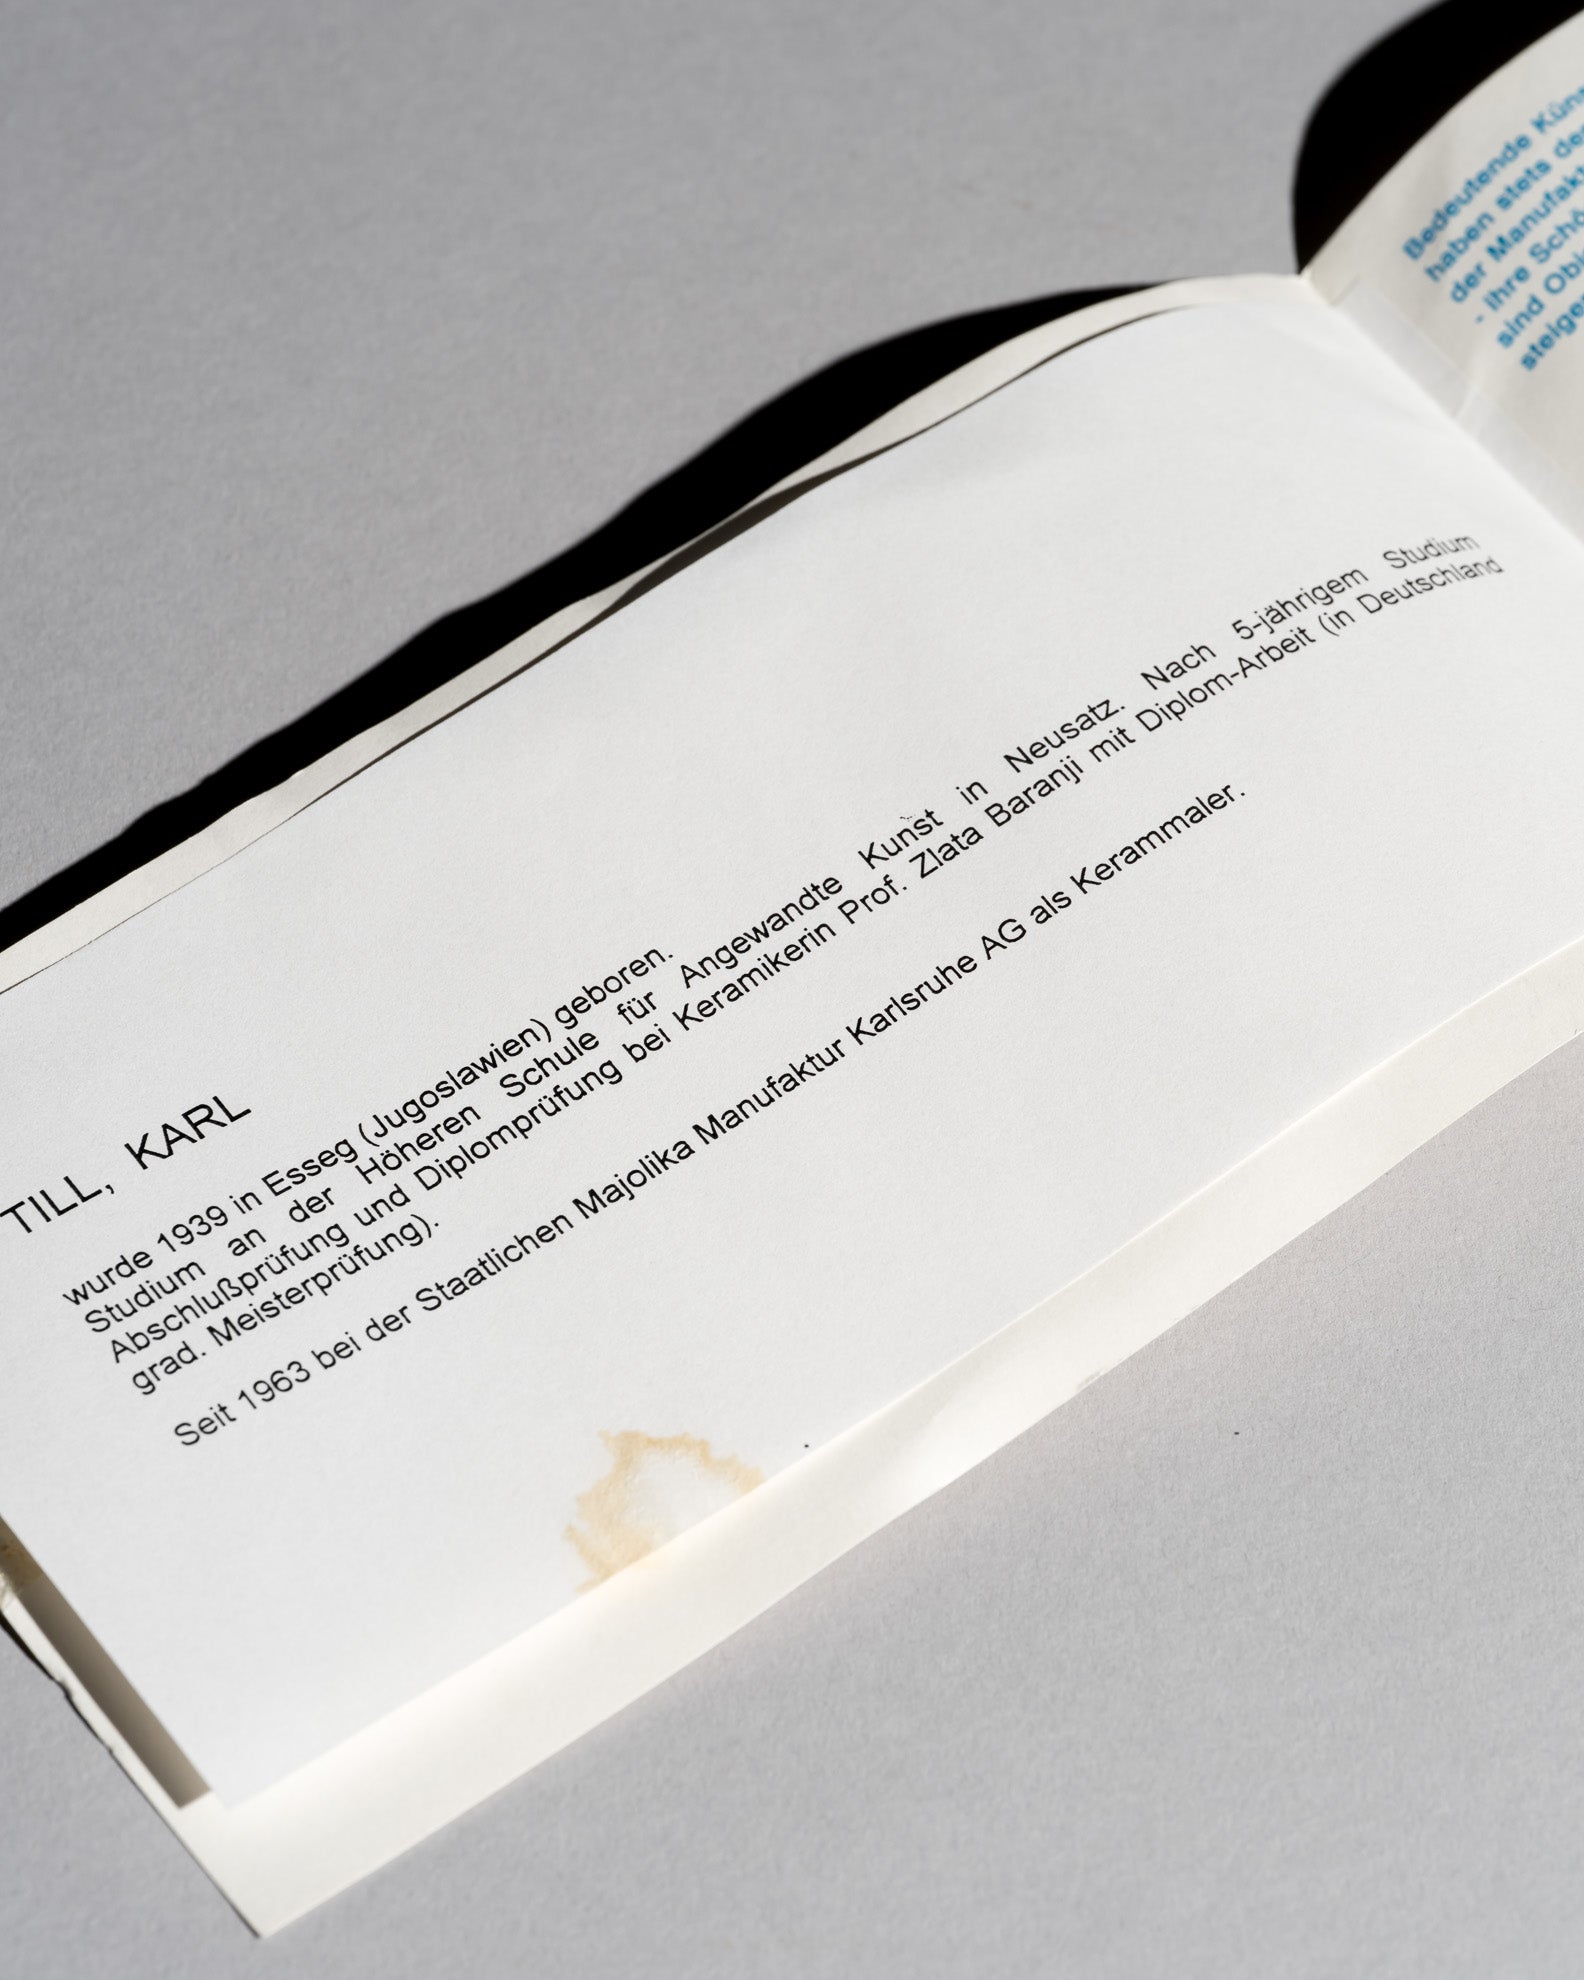 TILL, KARL
wurde 1939 in Esseg (Jugoslawien) geboren.
Studium an der Höheren Schule für Angewandte Kunst in Neusatz. Nach 5-jährigem Studium
Abschlußprüfung und Diplomprüfung bei Keramikerin Prof. Zlata Baranji mit Diplom-Arbeit (in Deutschland
grad. Meisterprüfung).
Seit 1963 bei der Staatlichen Majolika Manufaktur Karlsruhe AG als Kerammaler.
Bedeutende
haben stets
der
- ihre
sind